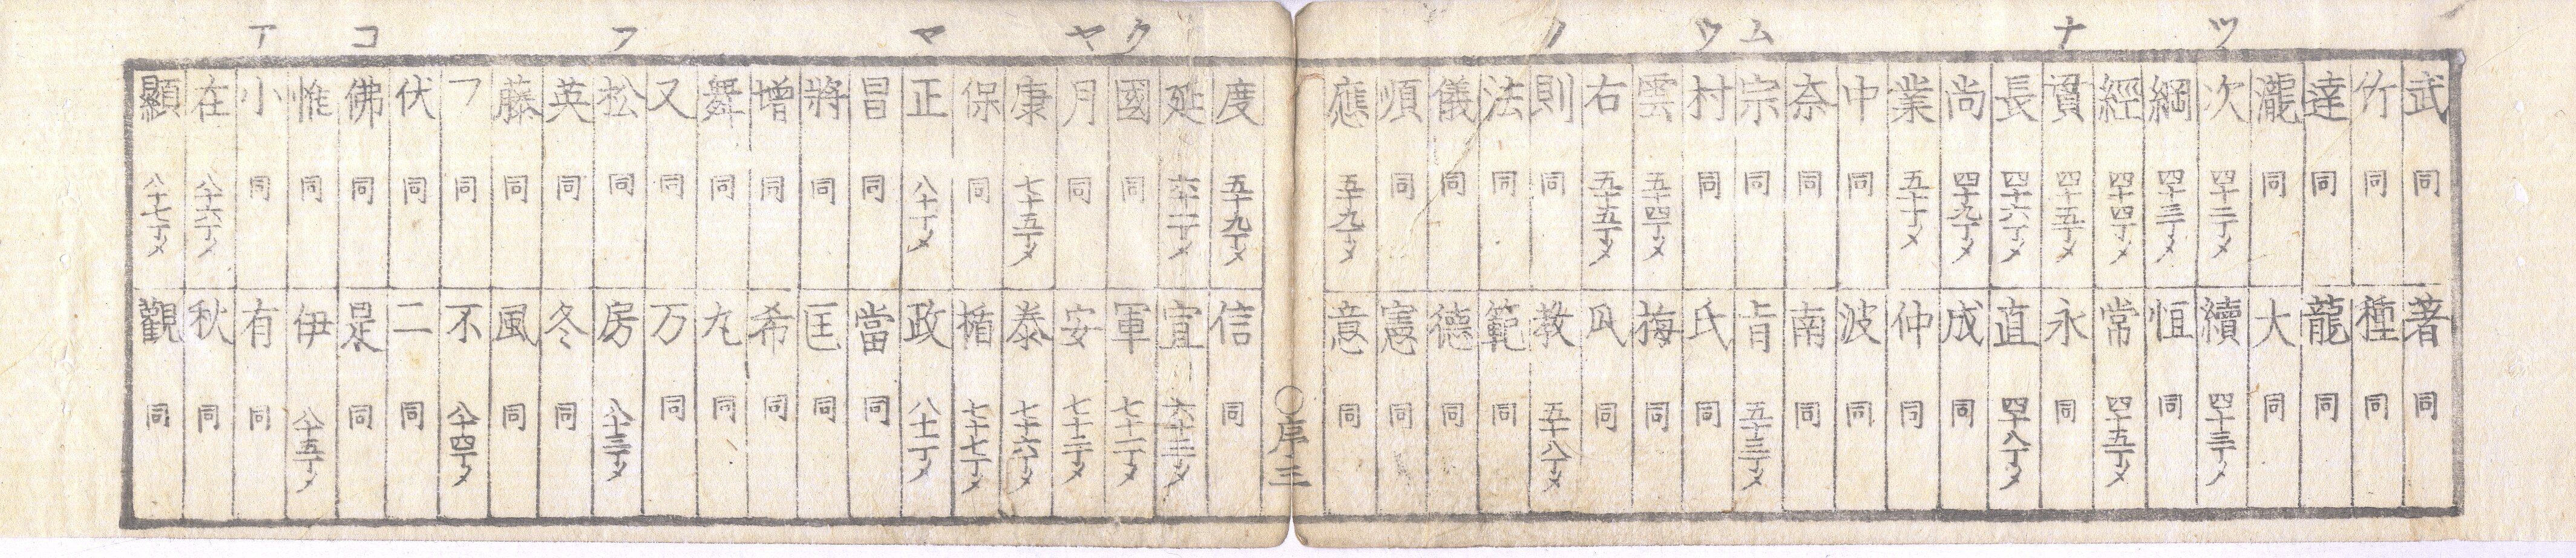 ツ ナ ム ウ ノ
武 同 著 同
竹 同 種 同
達 同 龍 同
瀧 同 大 同
次 四十二丁メ 續 四十三丁メ
綱 四十三丁メ 恒 同
經 四十四丁メ 常 四十五丁メ
貭 四十五丁メ 永 同
長 四十六丁メ 直 四十八丁メ
尚 四十九丁メ 成 同
業 五十丁メ 仲 同
中 同 波 同
奈 同 南 同
宗 同 肯 五十三丁メ
村 同 氏 同
雲 五十四丁メ 梅 同
右 五十五丁メ 同
則 同 教 五十八丁メ
法 同 範 同
儀 同 德 同
順 同 憲 同
應 五十九丁メ 意 同
○序 三
ク ヤ マ フ コ ア
度 五十九丁メ 信 同
延 六十二丁メ 宣 六十三丁メ
國 同 軍 七十二丁メ
月 同 安 七十三丁メ
康 七十五丁メ 泰 七十六丁メ
保 同 楯 七十七丁メ
正 八十丁メ 政 八十一丁メ
昌 同 當 同
將 同 匡 同
増 同 希 同
舞 同 丸 同
又 同 万 同
松 同 房 八十三丁メ
英 同 冬 同
藤 同 風 同
フ 同 不 八十四丁メ
伏 同 二 同
佛 同 是 同
惟 同 伊 八十五丁メ
小 同 有 同
在 八十六丁メ 秋 同
顯 八十七丁メ 觀 同